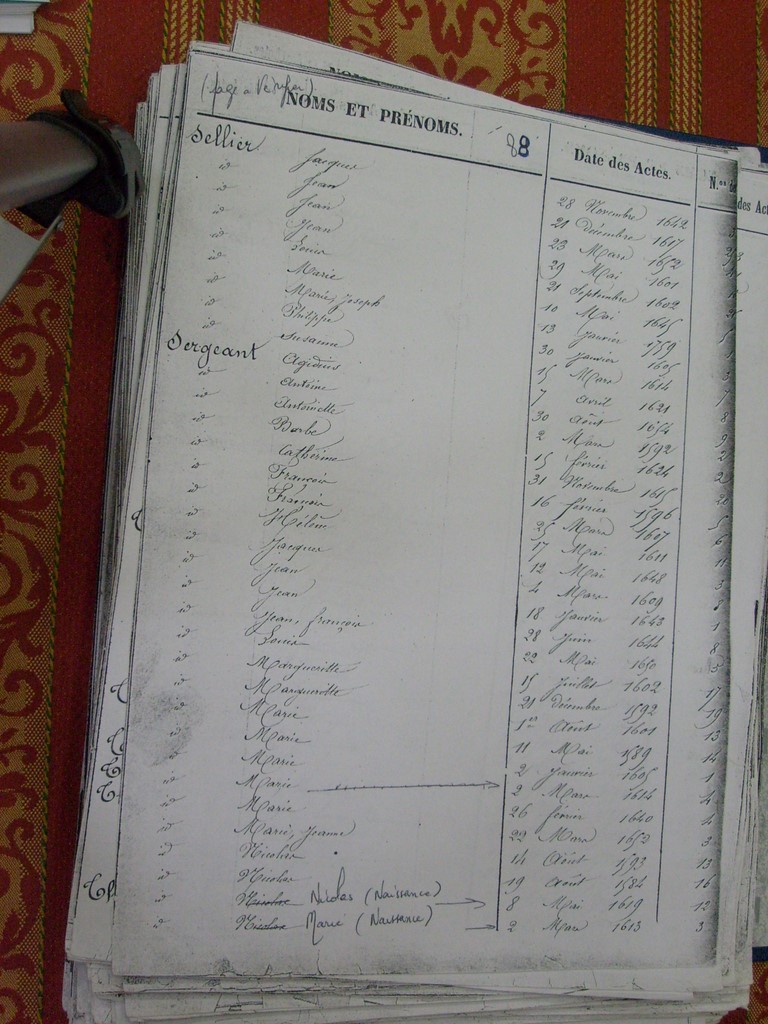 (page a Vérifier)
NOMS ET PRÉNOMS. 88 Date des Actes. N.os
des Act
Sellier Jacques 28 Novembre 1642
id Jean 21 Décembre 1617
id Jean 23 Mars 1652
id Jean 29 Mai 1601
id Louis 21 Septembre 1602
id Marie 10 Mai 1645
id Marie, Joseph 13 Janvier 1759
id Philippe 30 Janvier 1605
id Susanne 15 Mars 1614
Sergeant Agidius 7 Avril 1621
id Antoine 30 Août 1654
id Antoinette 2 Mars 1592
id Barbe 15 février 1624
id Catherine 31 Novembre 1615
id François 16 février 1596
id François 25 Mars 1607
id Hélène 17 Mai 1611
id Jacques 12 Mai 1648
id Jean 4 Mars 1609
id Jean 18 Janvier 1643
id Jean, françois 28 Juin 1644
id Louis 22 Mai 1650
id Marguerite 15 Juillet 1602 17
id Marguerite 21 Décembre 1592 19
id Marie 1er Août 1601 13
id Marie 11 Mai 1589 14
id Marie 2 Janvier 1605 1
id Marie 2 Mars 1614 4
id Marie 26 février 1640 4
id Marie, Jeanne 22 Mars 1653 3
id Nicolas 14 Août 1593 13
id Nicolas 19 Août 1584 16
id Nicolas Nicolas (Naissance) 8 Mai 1619 12
id Nicolas Marie (Naissance) 2 Mars 1613 3